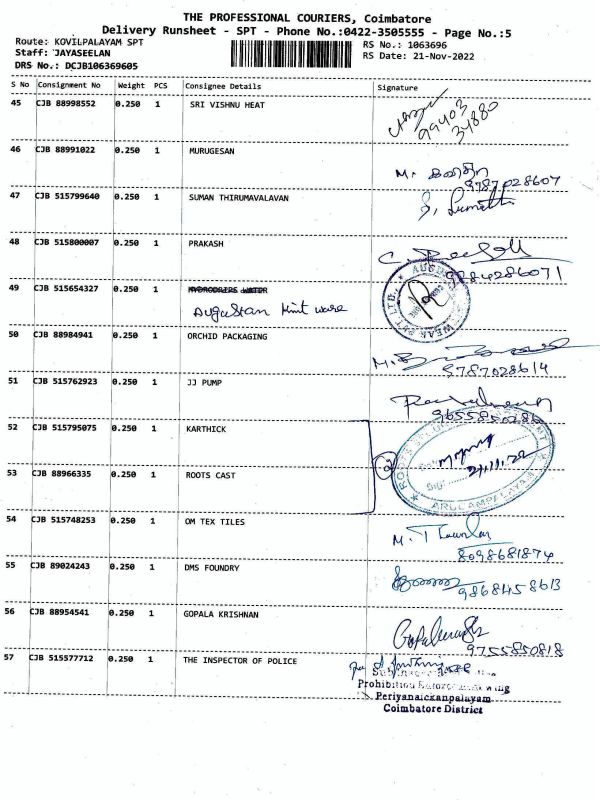 THE PROFESSIONAL COURIERS, Coimbatore
Delivery Runsheet - SPT - Phone No.:0422-3505555 - Page No.:5
Route: KOVILPALAYAM SPT
Staff: JAYASEELAN
DRS No.: DCJB106369605
RS No.: 1063696
RS Date: 21-Nov-2022
S No Consignment No Weight PCS Consignee Details Signature
45 CJB 88998552 0.250 1 SRI VISHNU HEAT
99403
34880
46 CJB 88991022 0.250 1 MURUGESAN
9787028607
47 CJB 515799640 0.250 1 SUMAN THIRUMAVALAVAN
48 CJB 515800007 0.250 1 PRAKASH
9884286071
49 CJB 515654327 0.250 1
Augustan Knit ware
50 CJB 88984941 0.250 1 ORCHID PACKAGING
9787028614
51 CJB 515762923 0.250 1 JJ PUMP
9655850286
52 CJB 515795075 0.250 1 KARTHICK
2
53 CJB 88966335 0.250 1 ROOTS CAST
ARULAMPALAYAM
54 CJB 515748253 0.250 1 OM TEX TILES
8098681874
55 CJB 89024243 0.250 1 DMS FOUNDRY
9868458613
56 CJB 88954541 0.250 1 GOPALA KRISHNAN
9755850818
57 CJB 515577712 0.250 1 THE INSPECTOR OF POLICE
Periyanaickanpalayam
Coimbatore District